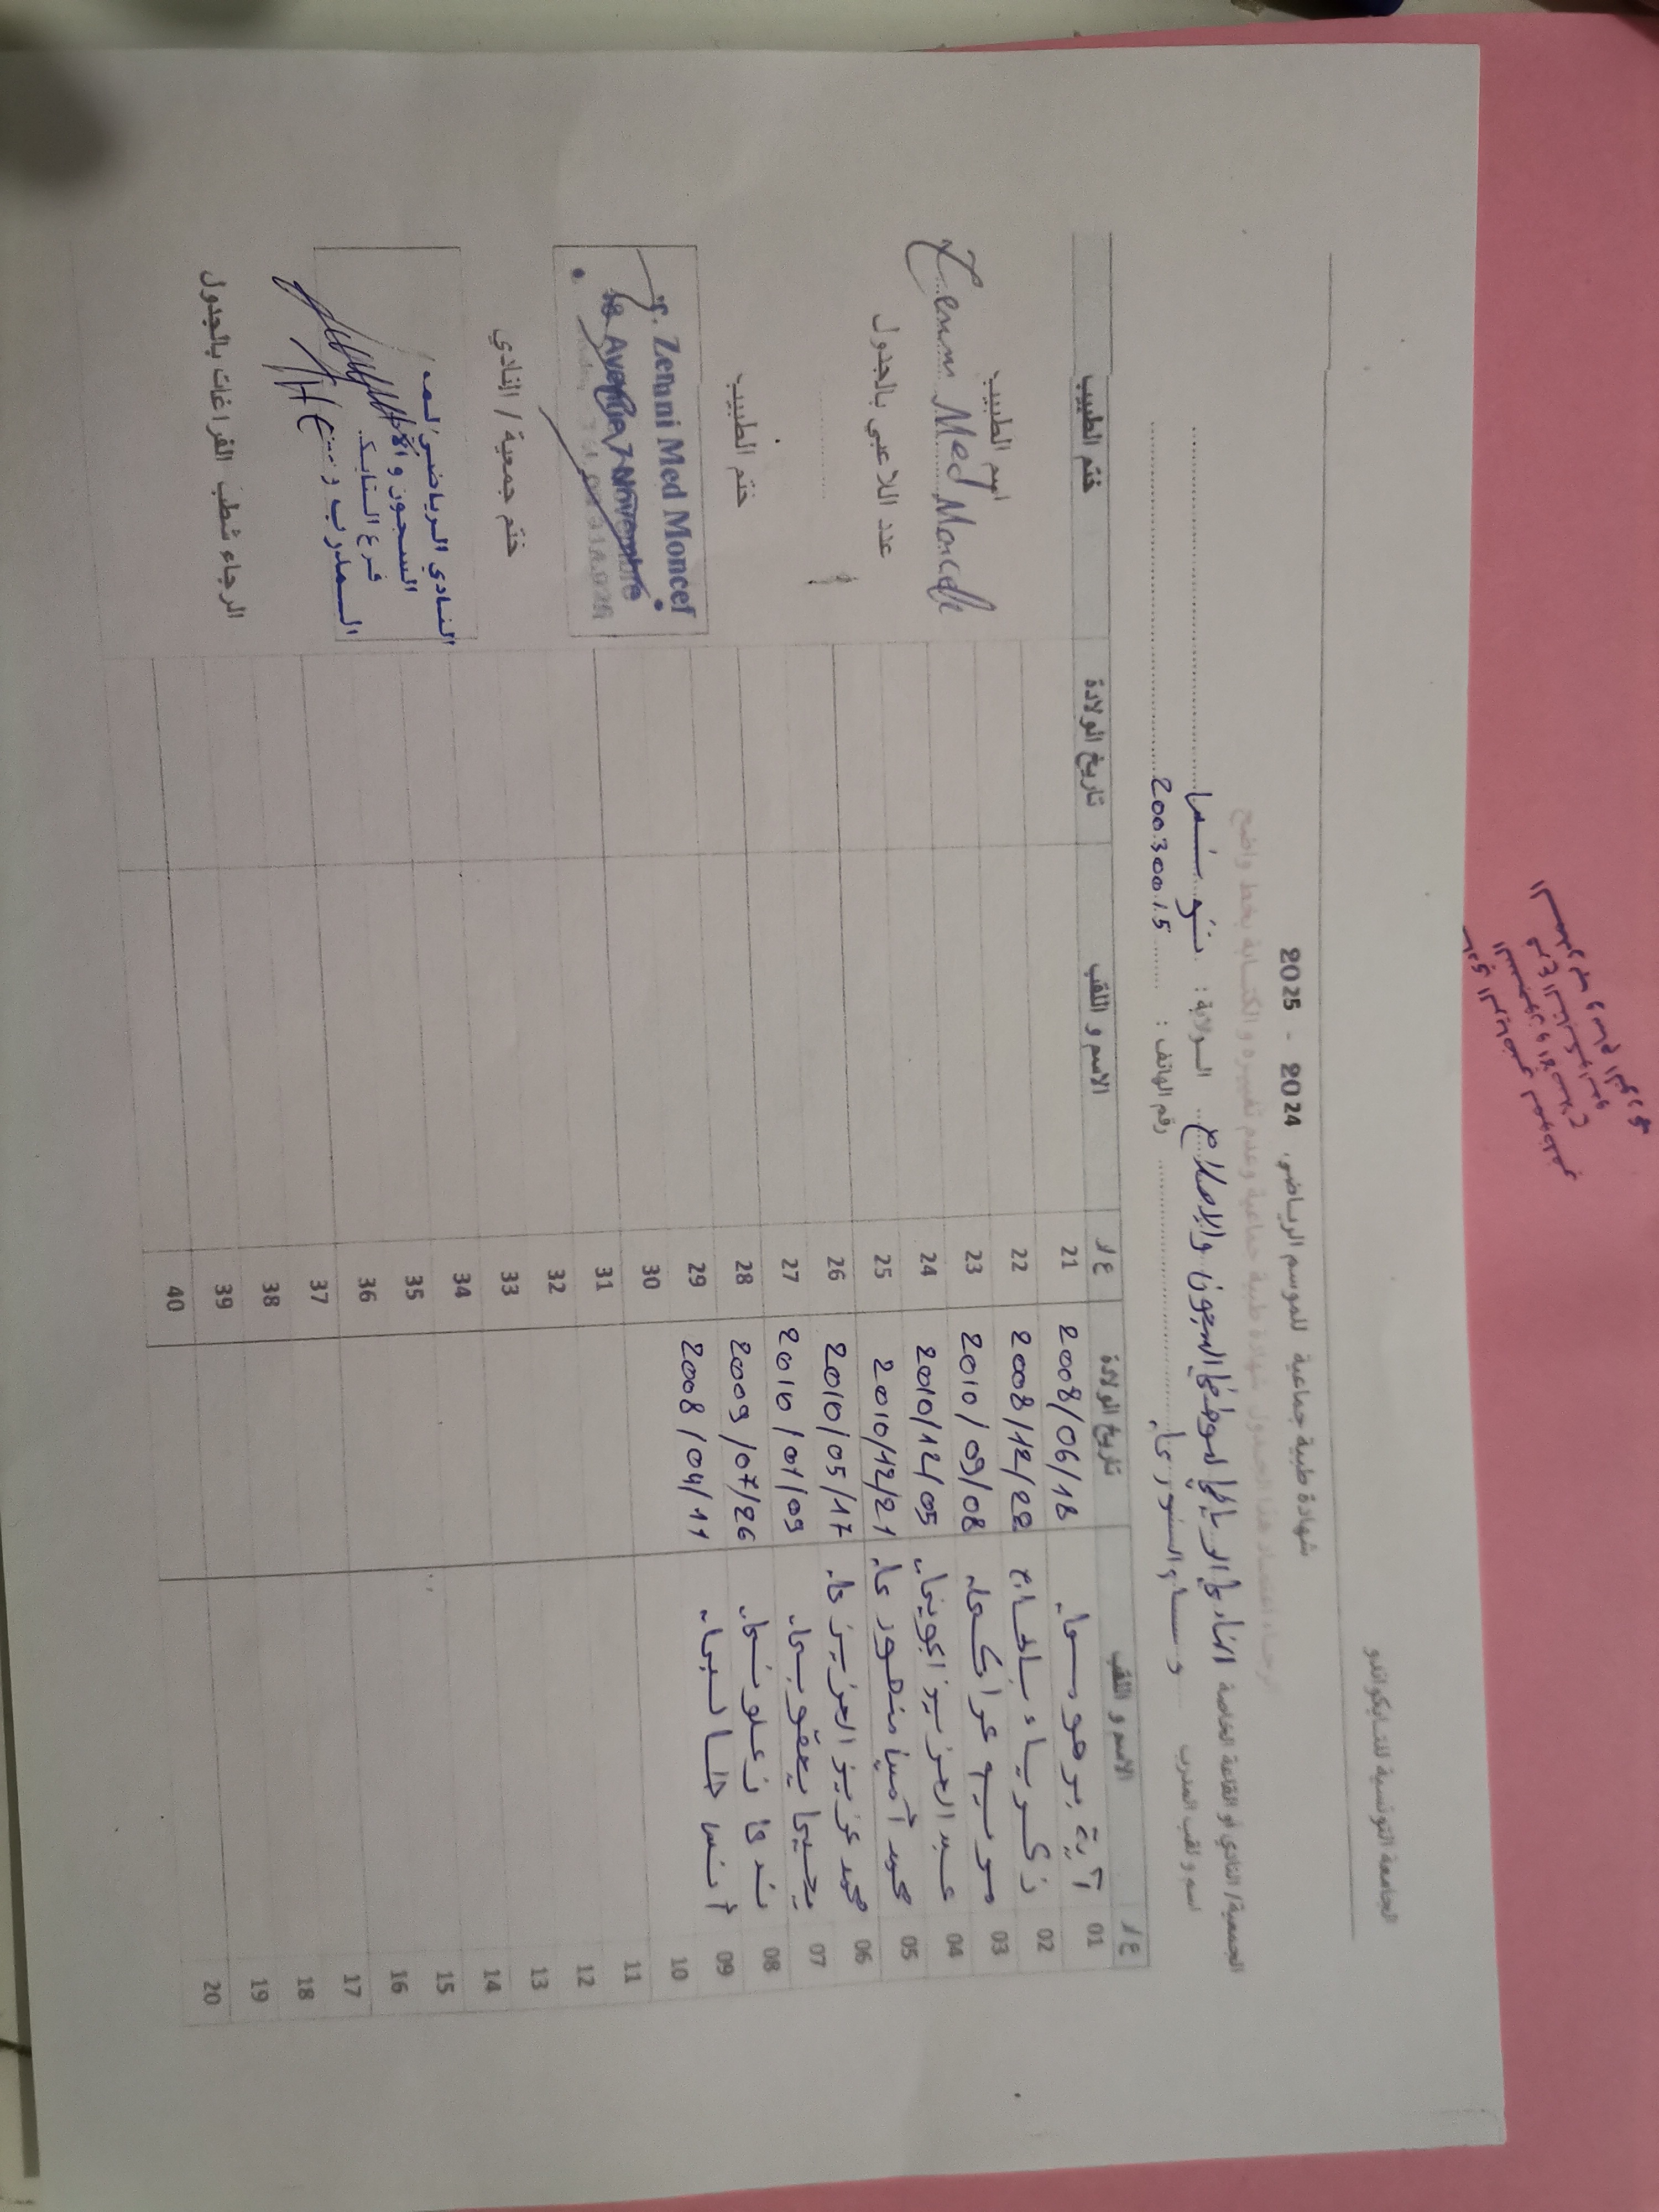 الجامعة التونسية للتايكواندو
شهادة طبية جماعية للموسم الرياضي 2024 - 2025
الرجاء اعتماد هذا الجدول شهادة طبية جماعية وعدم تغييره والكتابة بخط واضح
الجمعية/ النادي أو القاعة الخاصة النادي الرياضي لموظفي السجون والإصلاح الولاية : تونس
اسم و لقب المدرب وسام رقم الهاتف : 20030015
ع/ر الاسم و اللقب تاريخ الولادة ع/ر الاسم و اللقب تاريخ الولادة ختم الطبيب
01 آية 2008/06/18 21
02 زكرياء بالحاج 2008/12/22 22
03 2010/09/08 23
04 عبد العزيز الجويني 2010/12/05 24
05 محمد أمين منصور 2010/12/21 25
06 محمد عزيز العزيزي 2010/05/17 26
07 يحيى يعقوبي 2010/01/09 27
08 2009/07/26 28
09 أنس طالبي 2008/04/11 29
10 30
11 31
12 32
13 33
14 34
15 35
16 36
17 37
18 38
19 39
20 40
اسم الطبيب
Zemni Med Moncef
عدد اللاعبين بالجدول
ختم الطبيب
Dr. Zemni Med Moncef
18 Avenue 7 Novembre
ختم جمعية / النادي
النادي الرياضي
السجون و الإ
فرع التايك
المدرب و
الرجاء شطب الفراغات بالجدول
النادي الرياضي لموظفي
السجون و الإصلاح
فرع التايكواندو
المدرب وسام